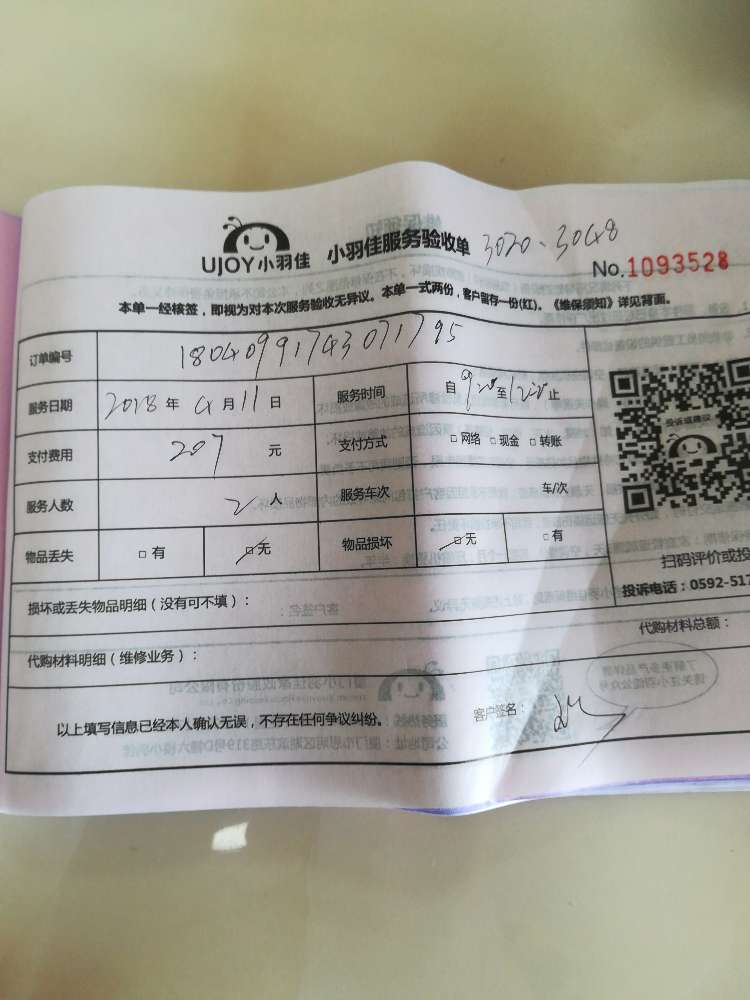 UJOY小羽佳 小羽佳服务验收单 3020-3048
No.1093528
本单一经核签，即视为对本次服务验收无异议。本单一式两份，客户留存一份(红)。《维保须知》详见背面。
订单编号 18040991743071795
服务日期 2018年 4月 11日 服务时间 自 9:00 至 12:00 止
支付费用 207 元 支付方式 □网络 □现金 □转账
服务人数 2 人 服务车次 车/次
物品丢失 □有 □无 物品损坏 □无 □有
投诉或建议
扫码评价或投
投诉电话：0592-517
损坏或丢失物品明细（没有可不填）：
代购材料明细（维修业务）： 代购材料总额：
以上填写信息已经本人确认无误，不存在任何争议纠纷。 客户签名：